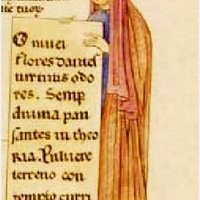 ne tuos
O mnei
flores daniel
utinus odo
res. Semp
divina pan
santes in theo
ria. Pulvere
terreno con
tempto curri